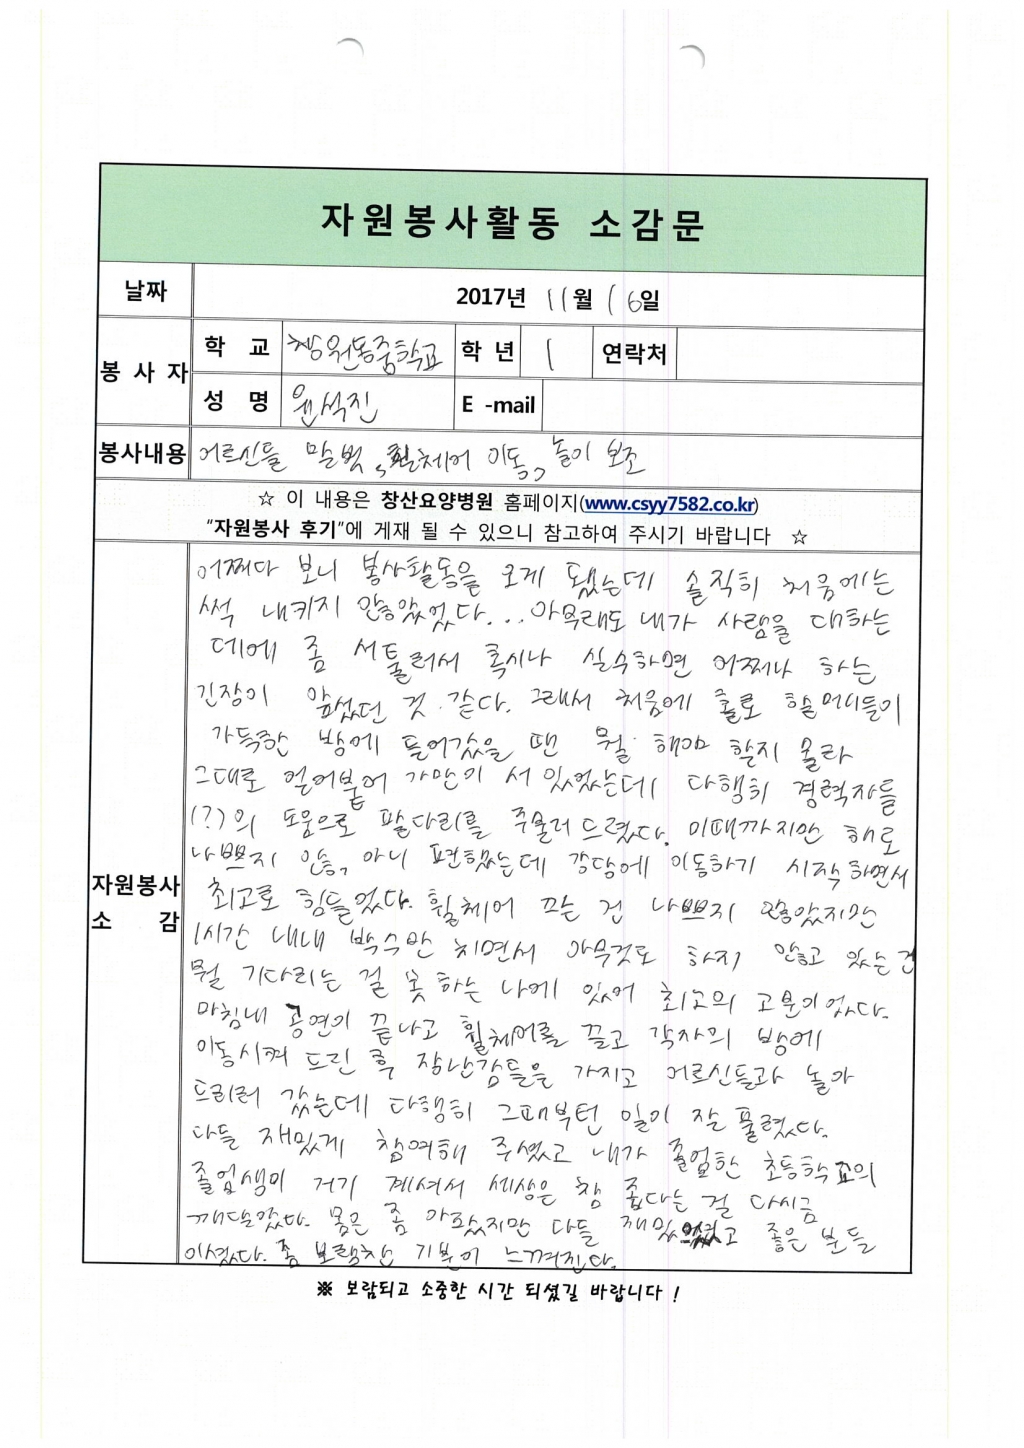 자원봉사활동 소감문
날짜 2017년 11월 16일
봉 사 자 학 교 창원동중학교 학 년 1 연락처
성 명 윤석진 E -mail
봉사내용 어르신들 말벗, 휠체어 이동, 놀이 보조
☆ 이 내용은 창산요양병원 홈페이지(www.csyy7582.co.kr)
"자원봉사 후기"에 게재 될 수 있으니 참고하여 주시기 바랍니다 ☆
자원봉사 소 감
어쩌다 보니 봉사활동을 오게 됐는데 솔직히 처음에는
썩 내키지 않았었다... 아무래도 내가 사람을 대하는
데에 좀 서툴러서 혹시나 실수하면 어쩌나 하는
긴장이 앞섰던 것 같다. 그래서 처음에 홀로 할머니들이
가득한 방에 들어갔을 땐 뭘 해야 할지 몰라
그대로 얼어붙어 가만이 서 있었는데 다행히 경력자들
(?)의 도움으로 팔다리를 주물러 드렸다. 이때까지만 해도
나쁘지 않, 아니 편했는데 강당에 이동하기 시작하면서
최고로 힘들었다. 휠체어 끄는 건 나쁘지 않았지만
1시간 내내 박수만 치면서 아무것도 하지 않고 있는건
뭘 기다리는 걸 못 하는 나에 있어 최고의 고문이었다.
마침내 공연이 끝나고 휠체어를 끌고 각자의 방에
이동시켜 드린 후 장난감들을 가지고 어르신들과 놀아
드리러 갔는데 다행히 그때부턴 일이 잘 풀렸다.
다들 재밌게 참여해 주셨고 내가 졸업한 초등학교의
졸업생이 거기 계셔서 세상은 참 좁다는 걸 다시금
깨달았다. 몸은 좀 아팠지만 다들 재밌었고 좋은 분들
이셨다. 좀 보람찬 기분이 느껴진다.
※ 보람되고 소중한 시간 되셨길 바랍니다 !